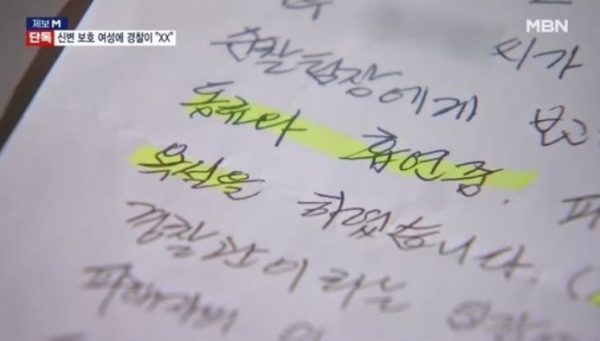 제보M
단독 신변 보호 여성에 경찰이 "XX"
MBN
씨가
순찰팀장에게 보고
동료와 흡연중. 피
욕설을 하였습니다. (
경찰관이라는
피해자의